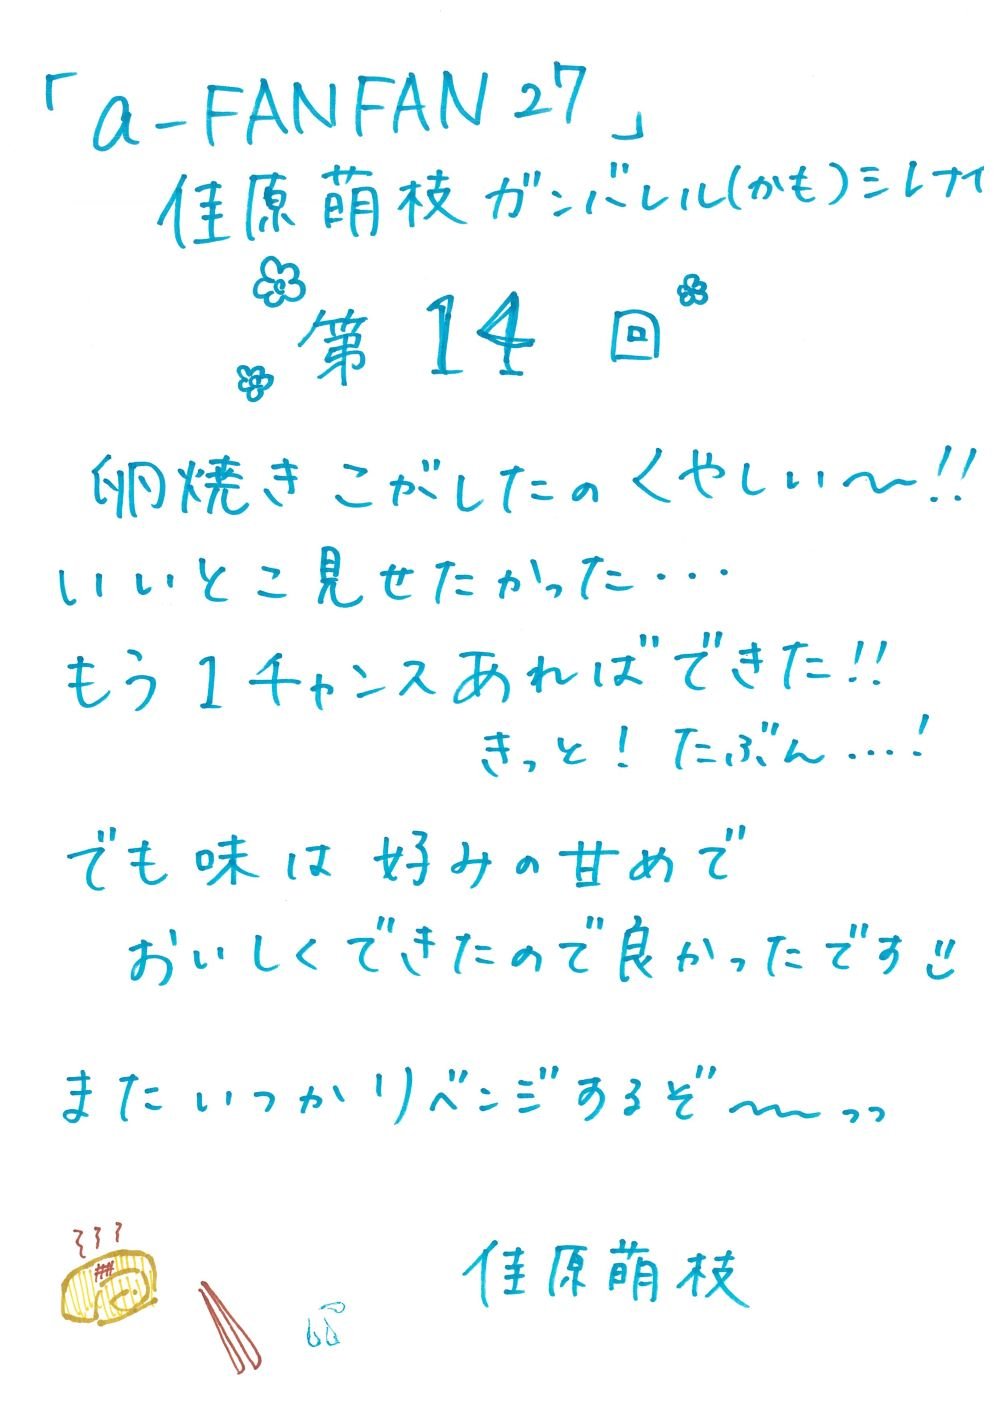 「a-FANFAN27」
佳原萌枝ガンバレル(かも)シレナイ
第14回
卵焼きこがしたのくやしい〜!!
いいとこ見せたかった・・・
もう1チャンスあればできた!!
きっと!たぶん…!
でも味は好みの甘めで
おいしくできたので良かったです
またいつかリベンジするぞ〜〜っっ
佳原萌枝